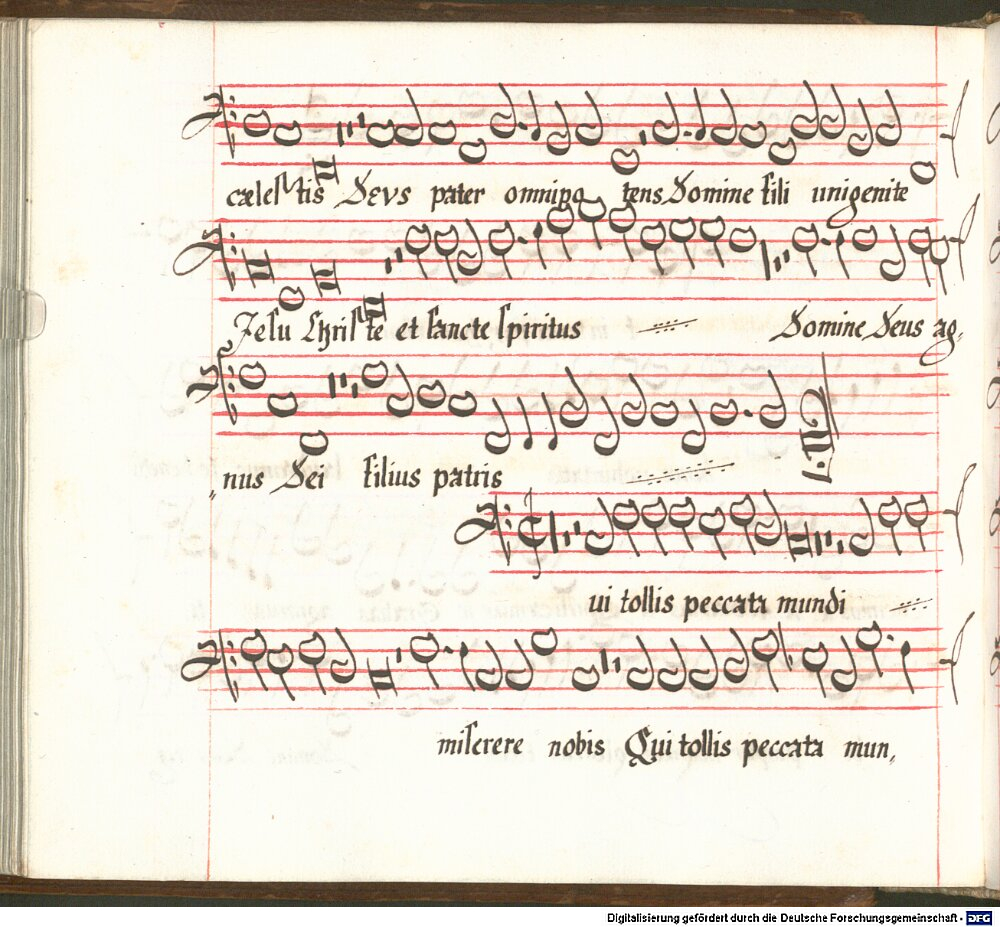 cæleſtis Deus pater omnipo tens Domine fili unigenite
Jeſu Chriſte et ſancte ſpiritus Domine Deus ag,
nus Dei filius patris
ui tollis peccata mundi
miſerere nobis Qui tollis peccata mun,
Digitalisierung gefördert durch die Deutsche Forschungsgemeinschaft - DFG